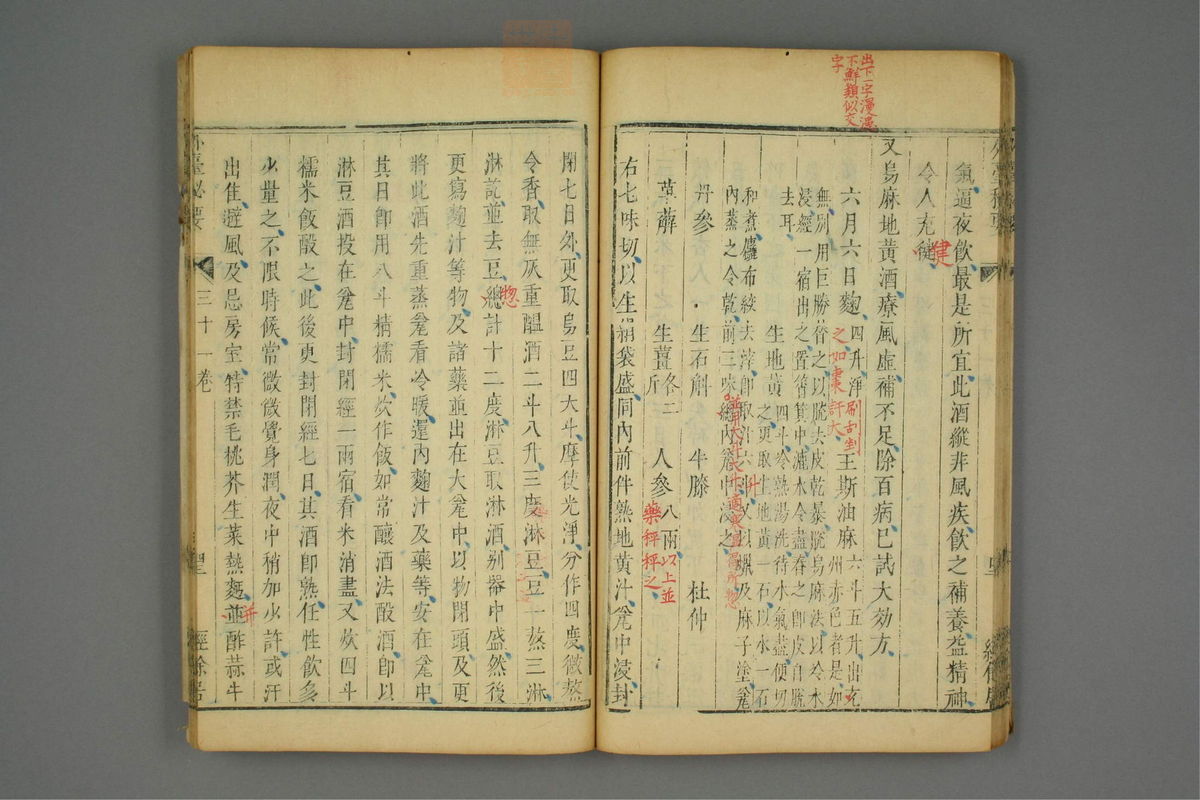 氣逼夜飲最是所宜此酒縱非風疾飲之補養益精神
令人充健
又烏麻地黃酒療風虛補不足除百病已試大効方
六月六日麴四升淨
王斯油麻六斗五升出
州赤色者是如
無別用巨勝替之以脫去皮乾暴脫烏麻法以冷水
浸經一宿出之置筲箕中漉水令盡舂之即皮自脫
去耳
生地黃四斗冷熱湯洗待水氣盡便切
之更取生地黃一石以水一石
和煮
布絞去滓即取汁六
及麻子塗瓮
內蒸之令乾前三味總內瓮中浸之
丹參 生石斛 牛膝 杜仲
萆薢 生薑各二斤 人參八兩
右七味切以生絹袋盛同內前件熟地黃汁瓮中浸封
閉七日外更取烏豆四大斗摩使光淨分作四度微熬
令香取無灰重醞酒二斗八升三度淋豆豆一熬三淋
淋訖並去豆總計十二度淋豆取淋酒別器中盛然後
更寫麴汁等物及諸藥並出在大瓮中以物閉頭及更
將此酒先重蒸瓮看冷暖還內麴汁及藥等安在瓮中
其日即用八斗精糯米炊作飯如常釀酒法酘酒即以
淋豆酒投在瓮中封閉經一兩宿看米消盡又炊四斗
糯米飯酘之此後更封閉經七日其酒即熟任性飲多
少量之不限時候常微微覺身潤夜中稍加少許或汗
出住避風及忌房室特禁毛桃芥生菜熱麵並酢蒜牛
外臺秘要
三十一卷
經餘居
出下一字漫漶
不鮮類似交
字
健
之如棗許大
刷刮剉
以上並
藥秤秤之
惣
并